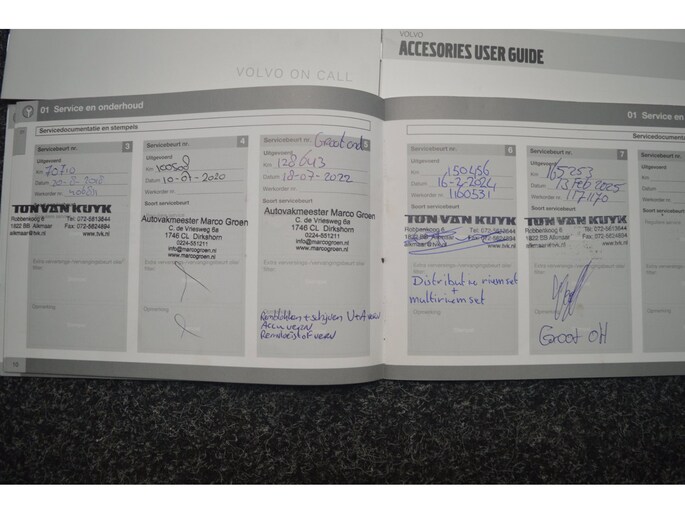 VOLVO
ACCESORIES USER GUIDE
VOLVO ON CALL
01 Service en onderhoud
Servicedocumentatie en stempels
Servicebeurt nr. 3
Uitgevoerd
Km 70710
Datum
Werkorder nr.
Soort servicebeurt
TON VAN KUYK
Robbenkoog 6 Tel: 072-5613644
1822 BB Alkmaar Fax: 072-5624894
alkmaar@tvk.nl www.tvk.nl
Opmerking
Servicebeurt nr. 4
Uitgevoerd
Km 100508
Datum 10-07-2020
Werkorder nr.
Soort servicebeurt
Autovakmeester Marco Groen
C. de Vriesweg 6a
1746 CL Dirkshorn
0224-551211
info@marcogroen.nl
marcogroen.nl
Opmerking
Servicebeurt nr. 5
Groot ond
Uitgevoerd
Km 128643
Datum 18-07-2022
Werkorder nr.
Soort servicebeurt
Autovakmeester Marco Groen
C. de Vriesweg 6a
1746 CL Dirkshorn
0224-551211
info@marcogroen.nl
marcogroen.nl
Remblokken + schijven V+A verv
Accu verv
Remvloeistof verv
10
01 Service en
Servicedocumenta
Servicebeurt nr. 6
Uitgevoerd
Km 150456
Datum 16-2-2024
Werkorder nr. 1160531
Soort servicebeurt
TON VAN KUYK
Robbenkoog 6 Tel: 072-5613644
1822 BB Alkmaar Fax: 072-5624894
alkmaar@tvk.nl www.tvk.nl
Distributieriemset
+
multiriemset
Opmerking
Servicebeurt nr. 7
Uitgevoerd
Km 165253
Datum 13 Feb 2025
Werkorder nr. 1171170
Soort servicebeurt
TON VAN KUYK
Robbenkoog 6 Tel: 072-5613644
1822 BB Alkmaar Fax: 072-5624894
alkmaar@tvk.nl www.tvk.nl
Opmerking
Groot OH
Servicebeurt nr.
Uitgevoerd
Km
Datum
Werkorder nr.
Soort servicebeurt
Opmerking